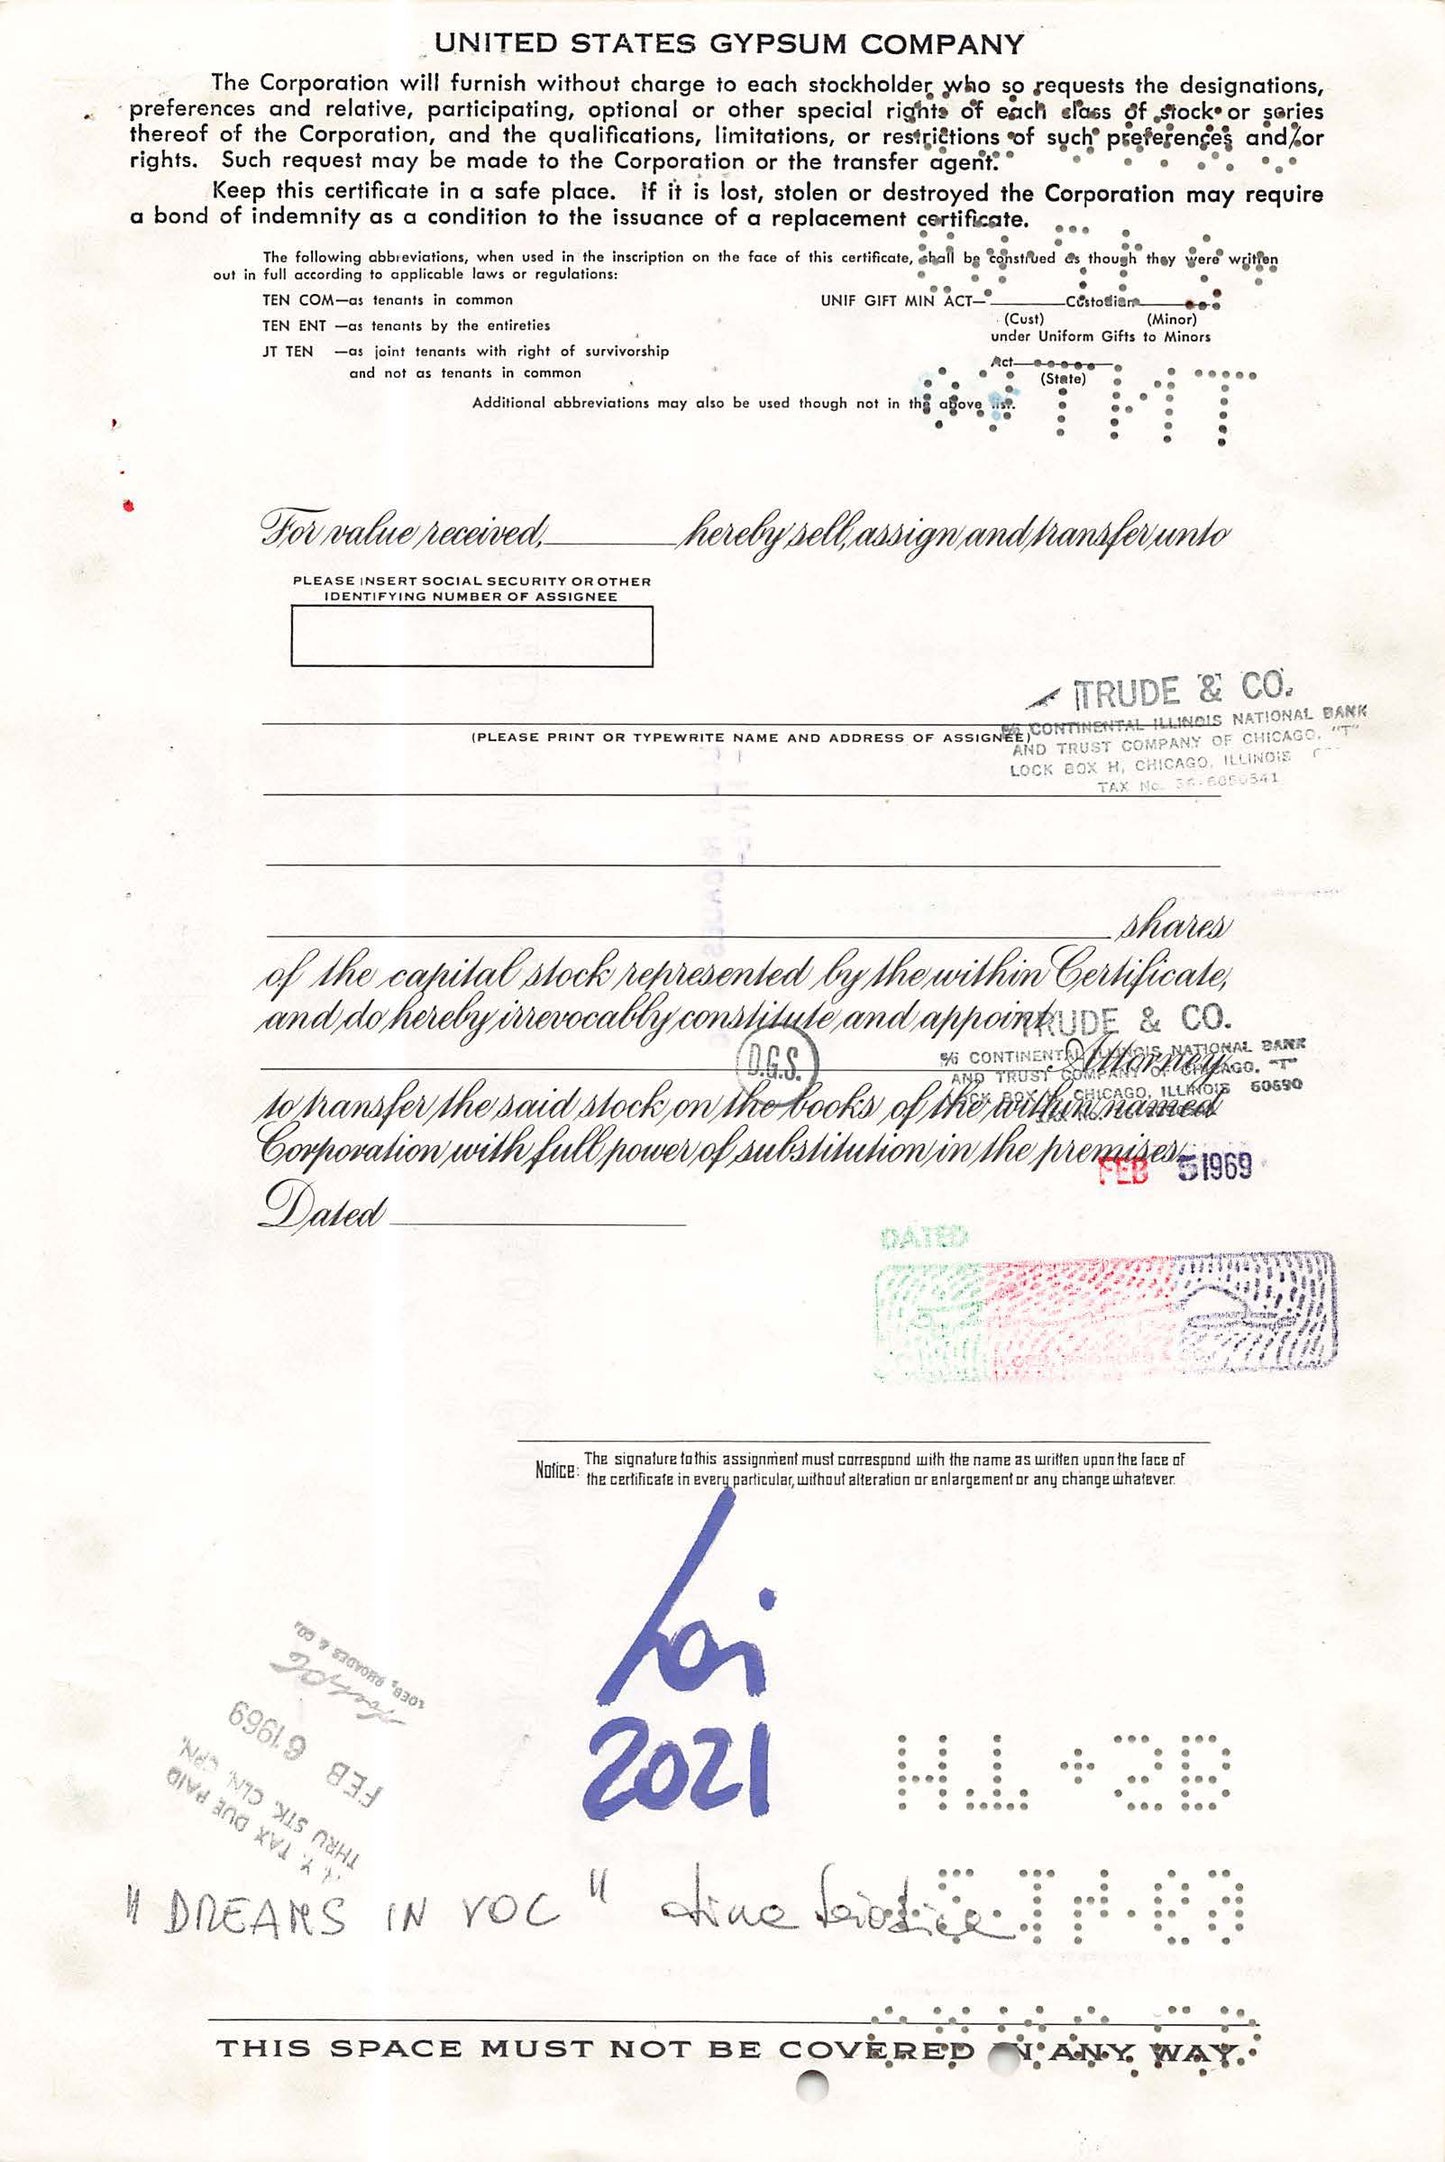 UNITED STATES GYPSUM COMPANY
The Corporation will furnish without charge to each stockholder who so requests the designations,
preferences and relative, participating, optional or other special rights of each class of stock or series
thereof of the Corporation, and the qualifications, limitations, or restrictions of such preferences and/or
rights. Such request may be made to the Corporation or the transfer agent.
Keep this certificate in a safe place. If it is lost, stolen or destroyed the Corporation may require
a bond of indemnity as a condition to the issuance of a replacement certificate.
The following abbreviations, when used in the inscription on the face of this certificate, shall be construed as though they were written
out in full according to applicable laws or regulations:
TEN COM—as tenants in common
TEN ENT —as tenants by the entireties
JT TEN —as joint tenants with right of survivorship
and not as tenants in common
UNIF GIFT MIN ACT—________Custodian________
(Cust) (Minor)
under Uniform Gifts to Minors
Act________
(State)
Additional abbreviations may also be used though not in the above list.
For value received, ________ hereby sell, assign and transfer unto
PLEASE INSERT SOCIAL SECURITY OR OTHER
IDENTIFYING NUMBER OF ASSIGNEE
TRUDE & CO.
% CONTINENTAL ILLINOIS NATIONAL BANK
AND TRUST COMPANY OF CHICAGO. "T"
LOCK BOX H, CHICAGO, ILLINOIS
TAX No.
(PLEASE PRINT OR TYPEWRITE NAME AND ADDRESS OF ASSIGNEE)
shares
of the capital stock represented by the within Certificate,
and do hereby irrevocably constitute and appoint
TRUDE & CO.
% CONTINENTAL ILLINOIS NATIONAL BANK
AND TRUST COMPANY OF CHICAGO. "T"
LOCK BOX H, CHICAGO, ILLINOIS 60690
D.G.S.
Attorney
to transfer the said stock on the books of the within named
Corporation with full power of substitution in the premises.
FEB 5 1969
Dated
DATED
Notice: The signature to this assignment must correspond with the name as written upon the face of
the certificate in every particular, without alteration or enlargement or any change whatever.
2021
LOEB, RHOADES & CO.
FEB 6 1969
N.Y. TAX DUE PAID
THRU STK. CLN. CPN.
" DREAMS IN VOC "
THIS SPACE MUST NOT BE COVERED IN ANY WAY